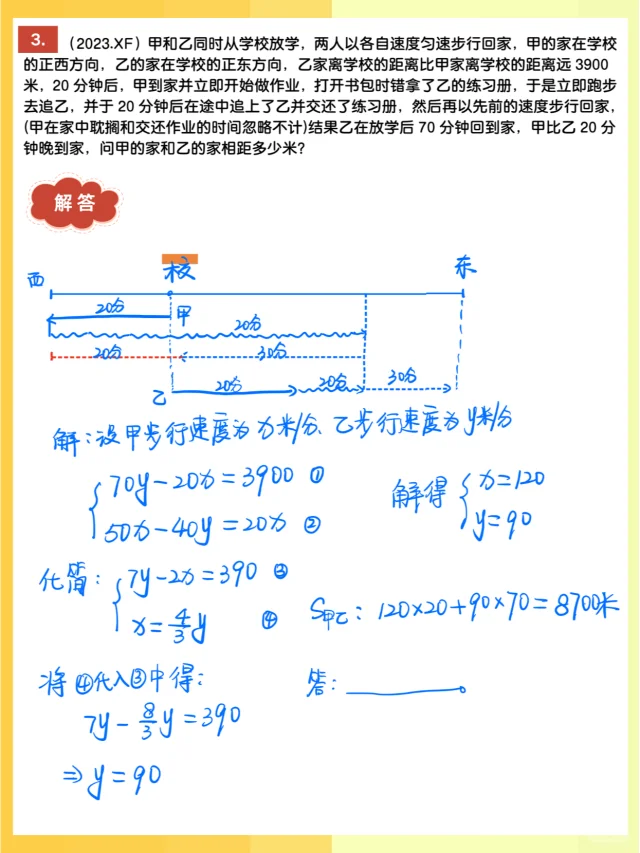 3. (2023.XF) 甲和乙同时从学校放学，两人以各自速度匀速步行回家，甲的家在学校
的正西方向，乙的家在学校的正东方向，乙家离学校的距离比甲家离学校的距离远 3900
米，20 分钟后，甲到家并立即开始做作业，打开书包时错拿了乙的练习册，于是立即跑步
去追乙，并于 20 分钟后在途中追上了乙并交还了练习册，然后再以先前的速度步行回家，
(甲在家中耽搁和交还作业的时间忽略不计)结果乙在放学后 70 分钟回到家，甲比乙 20 分
钟晚到家，问甲的家和乙的家相距多少米？
解答
西 校 东
20分 甲
20分
20分 30分
乙 20分 20分 30分
解：设甲步行速度为x米/分、乙步行速度为y米/分
70y-20x=3900 ①
50x-40y=20x ②
解得 x=120
y=90
化简：7y-2x=390 ③
x=4/3y ④
S甲乙：120×20+90×70=8700米
将④代入③中得：
答：
7y-8/3y=390
⇒y=90